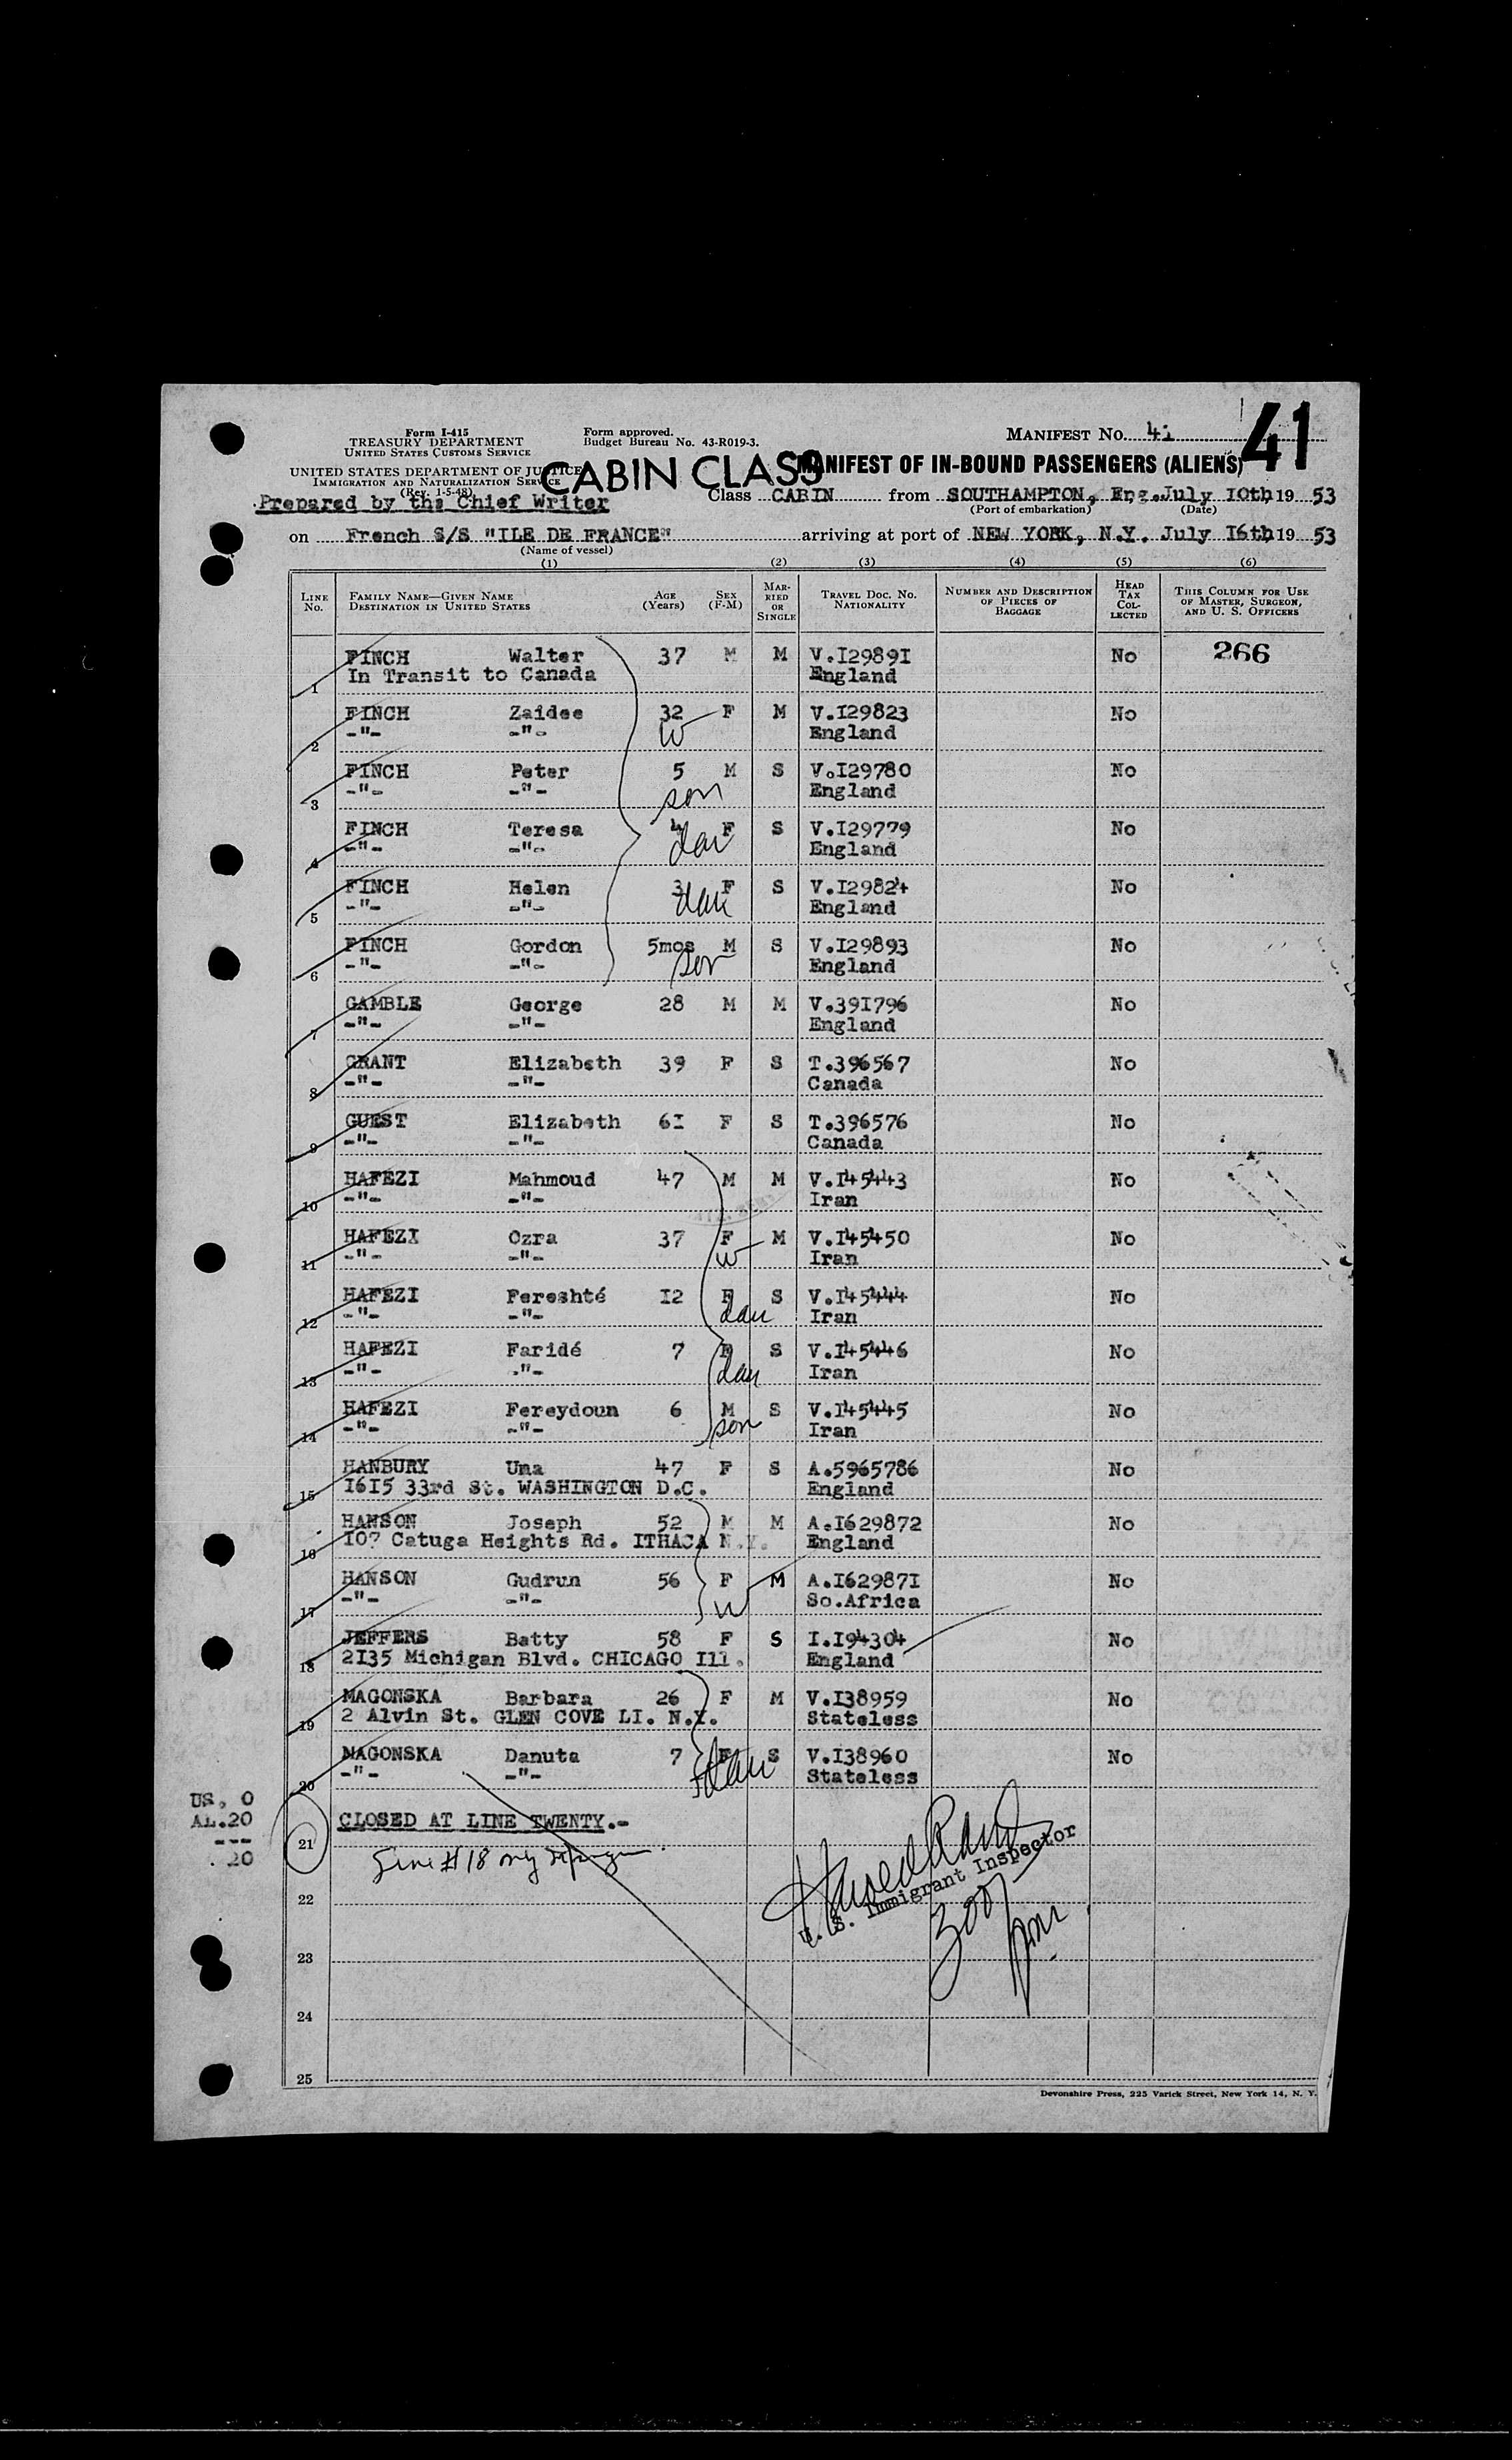 41
Form I-415
TREASURY DEPARTMENT
UNITED STATES CUSTOMS SERVICE
Form approved.
Budget Bureau No. 43-R019-3.
MANIFEST No. 41
UNITED STATES DEPARTMENT OF JUSTICE
IMMIGRATION AND NATURALIZATION SERVICE
(Rev. 1-5-48)
CABIN CLASS
MANIFEST OF IN-BOUND PASSENGERS (ALIENS)
Prepared by the Chief Writer
Class CABIN from SOUTHAMPTON, Eng. July 10th, 19 53
(Port of embarkation) (Date)
on French S/S "ILE DE FRANCE" arriving at port of NEW YORK, N.Y. July I6th, 19 53
(Name of vessel)
(1) (2) (3) (4) (5) (6)
LINE No. FAMILY NAME—GIVEN NAME DESTINATION IN UNITED STATES AGE (Years) SEX (F-M) MARRIED OR SINGLE TRAVEL DOC. NO. NATIONALITY NUMBER AND DESCRIPTION OF PIECES OF BAGGAGE HEAD TAX COLLECTED THIS COLUMN FOR USE OF MASTER, SURGEON, AND U. S. OFFICERS
FINCH Walter 37 M M V.I2989I No 266
1 In Transit to Canada England
FINCH Zaidee 32 F M V.I29823 No
2 -"- -"- W England
FINCH Peter 5 M S V.I29780 No
3 -"- -"- son England
FINCH Teresa 4 F S V.I29779 No
4 -"- -"- dau England
FINCH Helen 3 F S V.I29824 No
5 -"- -"- dau England
FINCH Gordon 5mos M S V.I29893 No
6 -"- -"- son England
GAMBLE George 28 M M V.39I796 No
7 -"- -"- England
GRANT Elizabeth 39 F S T.396567 No
8 -"- -"- Canada
GUEST Elizabeth 6I F S T.396576 No
9 -"- -"- Canada
HAFEZI Mahmoud 47 M M V.I45443 No
10 -"- -"- Iran
HAFEZI Ozra 37 F M V.I45450 No
11 -"- -"- W Iran
HAFEZI Fereshté I2 F S V.I45444 No
12 -"- -"- dau Iran
HAFEZI Faridé 7 F S V.I45446 No
13 -"- -"- dau Iran
HAFEZI Fereydoun 6 M S V.I45445 No
14 -"- -"- son Iran
HANBURY Una 47 F S A.5965786 No
15 I6I5 33rd St. WASHINGTON D.C. England
HANSON Joseph 52 M M A.I629872 No
16 I07 Catuga Heights Rd. ITHACA N.Y. England
HANSON Gudrun 56 F M A.I62987I No
17 -"- -"- W So.Africa
JEFFERS Betty 58 F S I.I94304 No
18 2I35 Michigan Blvd. CHICAGO Ill. England
MAGONSKA Barbara 26 F M V.I38959 No
19 2 Alvin St. GLEN COVE LI. N.Y. Stateless
MAGONSKA Danuta 7 F S V.I38960 No
20 -"- -"- dau Stateless
US. 0
AL.20
---
20
21 CLOSED AT LINE TWENTY.-
Line #18 only
U. S. Immigrant Inspector
300 pm
22
23
24
25
Devonshire Press, 225 Varick Street, New York 14, N. Y.